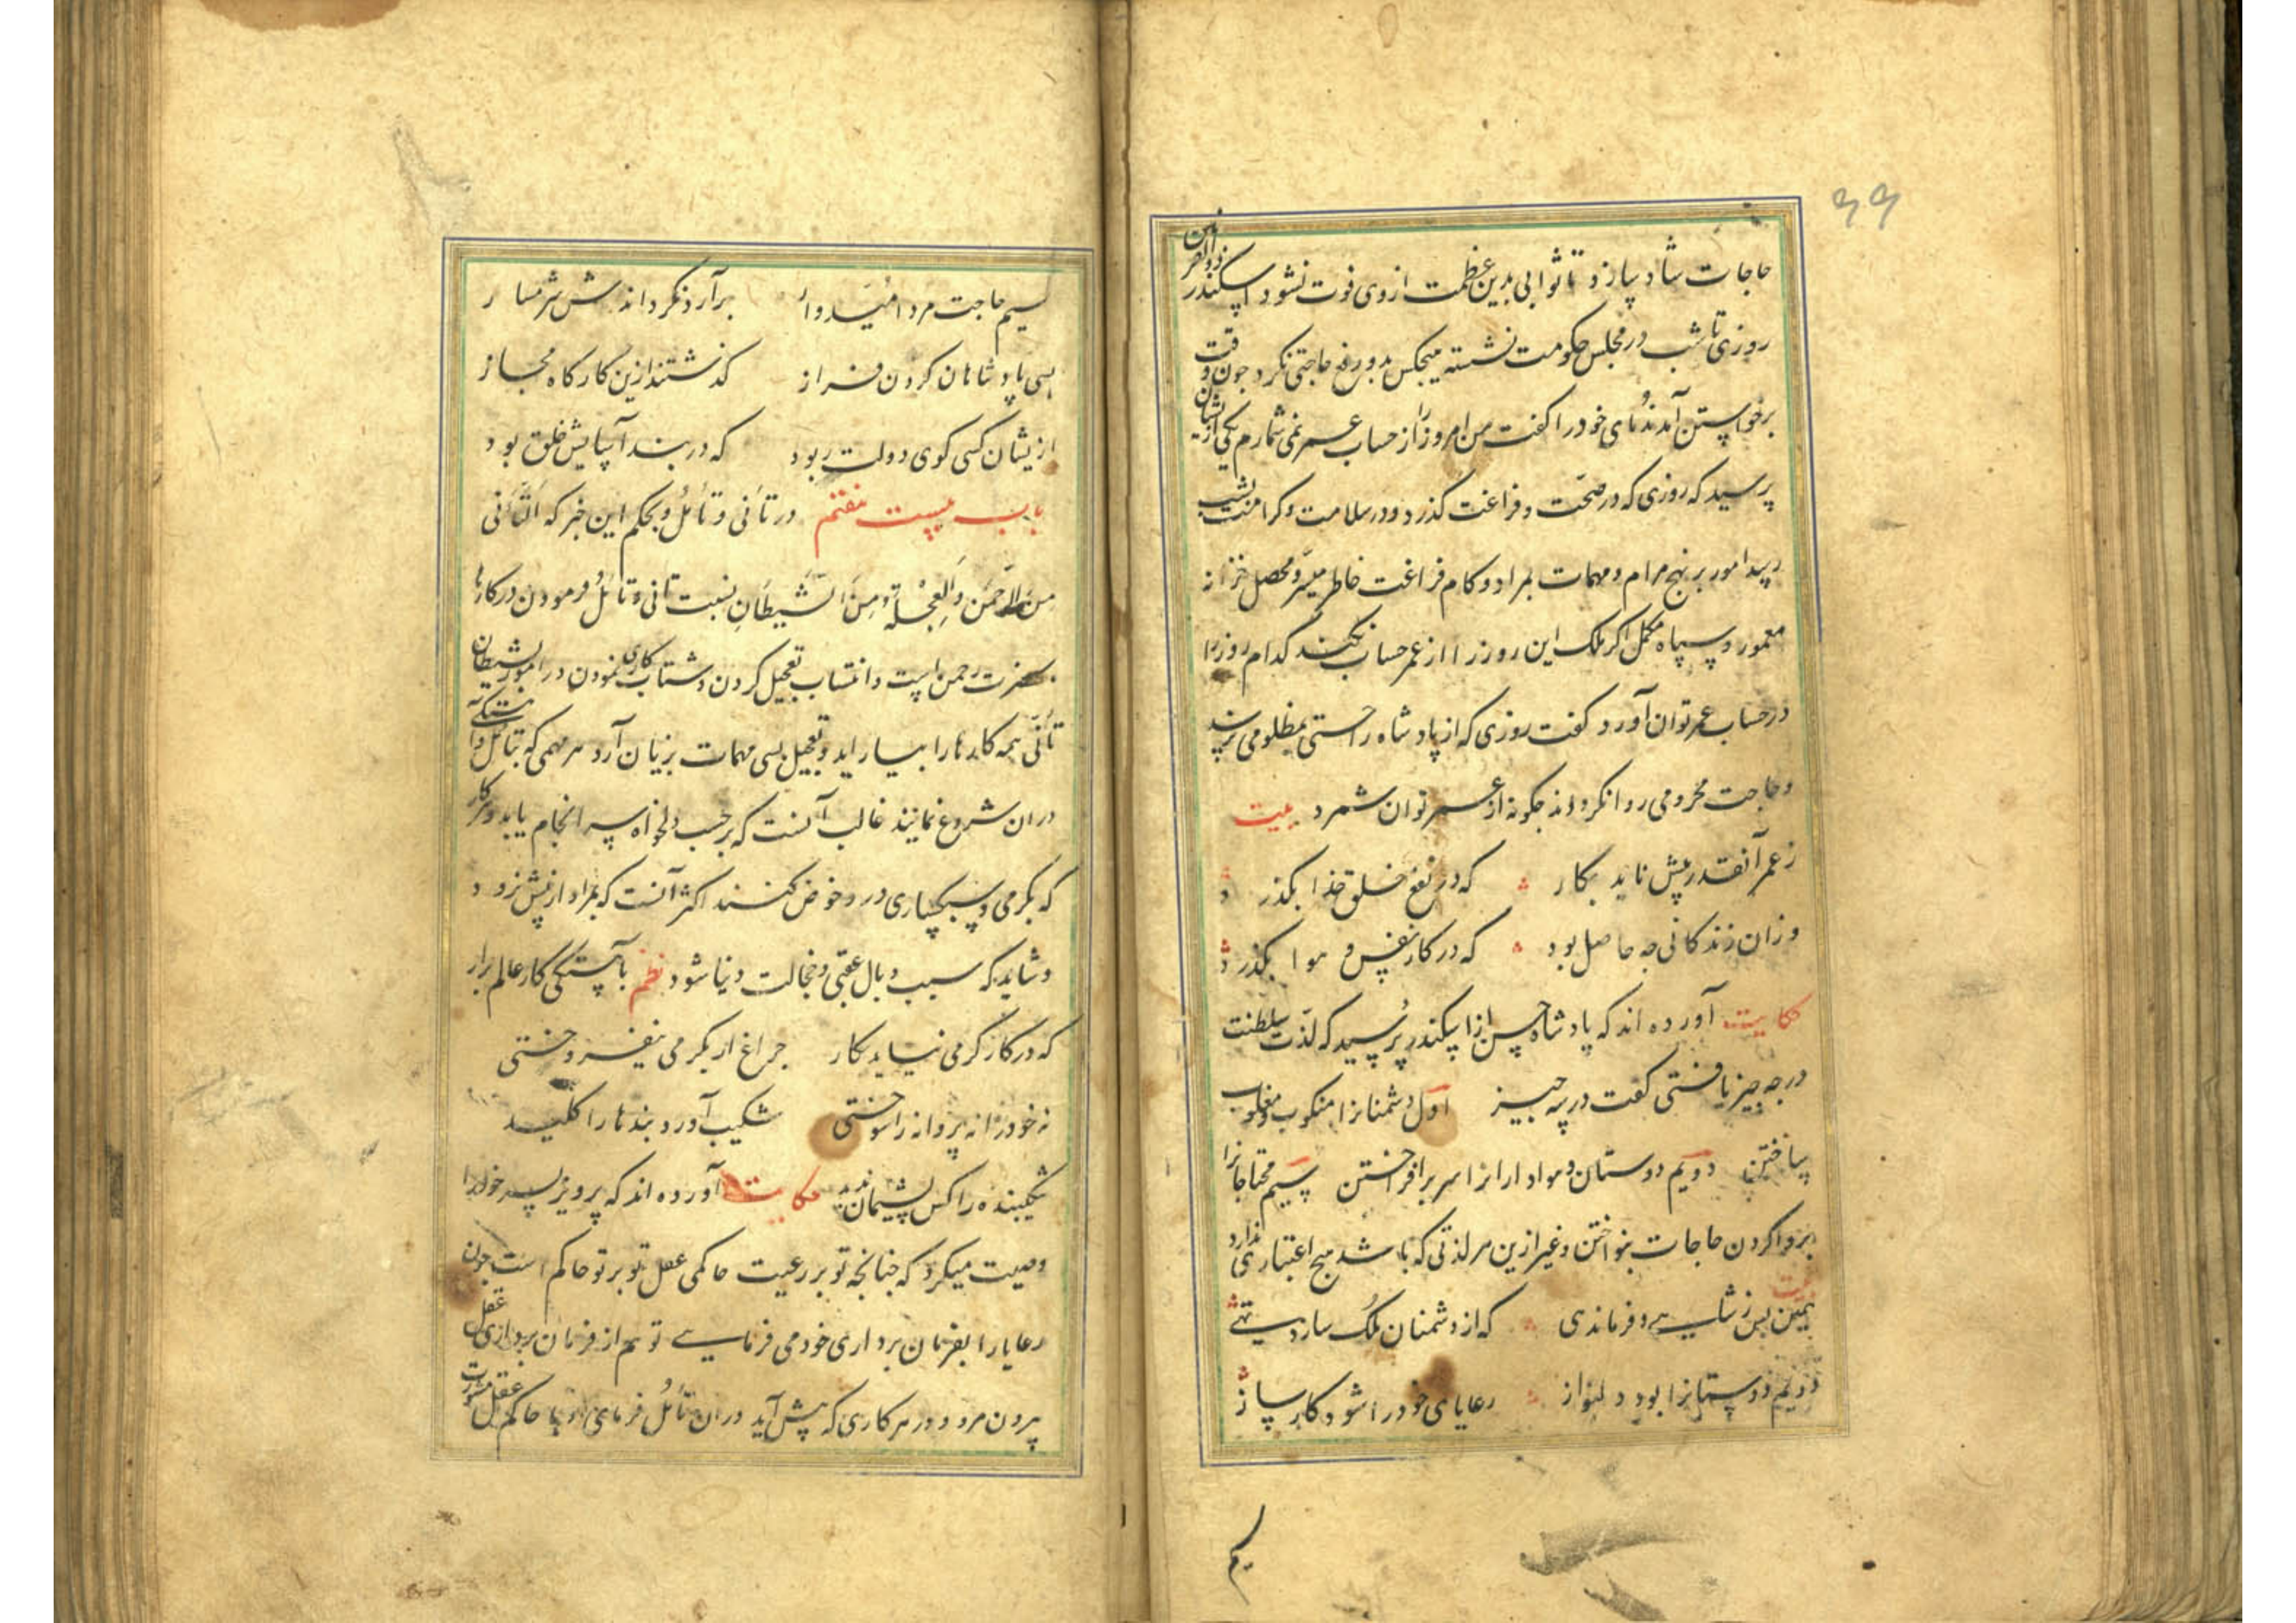 ۶۶
حاجات شاد سازد تا ثوابی بدین عظمت از وی فوت نشود اسکندر ذوالقرنین
روزی تا شب در مجلس حکومت نشسته هیچکس بدو رفع حاجتی نکرد چون وقت
برخواستن آمد ندمای خود را کفت من امروز را از حساب عمر نمی شمارم یکی از ایشان
پرسید که روزی که در صحت و فراغت کذرد و در سلامت و کرامت بشب
رسد امور بر نهج مرام و مهمات بمراد و کام فراغت خاطر میسر و محصل خزانه
معمور و سپاه مکمل اکر ملک این روز را از عمر حساب نکند کدام روز را
در حساب عمر توان آورد کفت روزی که از پادشاه راحتی بمظلومی نرسد
و حاجت محرومی روا نکرداند چکونه از عمر توان شمرد بیت
ز عمر آنقدر پیش ناید بکار که در نفع خلق خدا بکذرد
وزان زندکانی چه حاصل بود که در کار نفس و هوا بکذرد
حکایت آورده اند که پادشاه چین از اسکندر پرسید که لذت سلطنت
در چه چیز یافتی کفت در سه چیز اول دشمنانرا منکوب و مغلوب
ساختن دویم دوستان و هوادارانرا سر برافراختن سیم محتاجانرا
بروا کردن حاجات بنواختن و غیر ازین هر لذتی که باشد هیچ اعتباری ندارد
بیت
که از دشمنان ملک سازد تهی
دویم دوستانرا بود دلنواز رعایای خود را شود کار ساز
سیم
سیم حاجت مرد امیدوار برآرد نکرداندش شرمسار
بسی پادشاهان کردن فراز کذشتند ازین کارکاه مجاز
ازیشان کسی کوی دولت ربود که در بند آسایش خلق بود
باب بیست هفتم در تأنی و تأمل و بحکم این خبر که التأنی
من الرحمن والعجلة من الشیطان نسبت تأنی و تأمل فرمودن در کارها
بحضرت رحمن است و انتساب تعجیل کردن و شتاب کاری نمودن در امور بشیطان
تأنی همه کارها را بیاراید و تعجیل بسی مهمات بزیان آرد هر مهمی که بتأمل و آهستکی
دران شروع نمایند غالب آنست که بر حسب دلخواه سرانجام یابد و هر کار
که بکرمی و سبکساری درو خوض کنند اکثر آنست که بمراد از پیش نرود
و شاید که سبب وبال عقبی و خجالت دنیا شود نظم بآهستکی کار عالم برار
که در کار کرمی نیاید بکار چراغ ار بکرمی نیفروختی
نه خود را نه پروانه را سوختی شکیب آورد بندها را کلید
شکیبنده را کس پشیمان ندید حکایت آورده اند که پرویز پسر خود را
وصیت میکرد که چنانچه تو بر رعیت حاکمی عقل تو بر تو حاکم است چون
رعایا را بفرمان برداری خود می فرمایی تو هم از فرمان برداری عقل
بیرون مرو و در هر کاری که پیش آید دران تأمل فرمای و با حاکم عقل مشورت